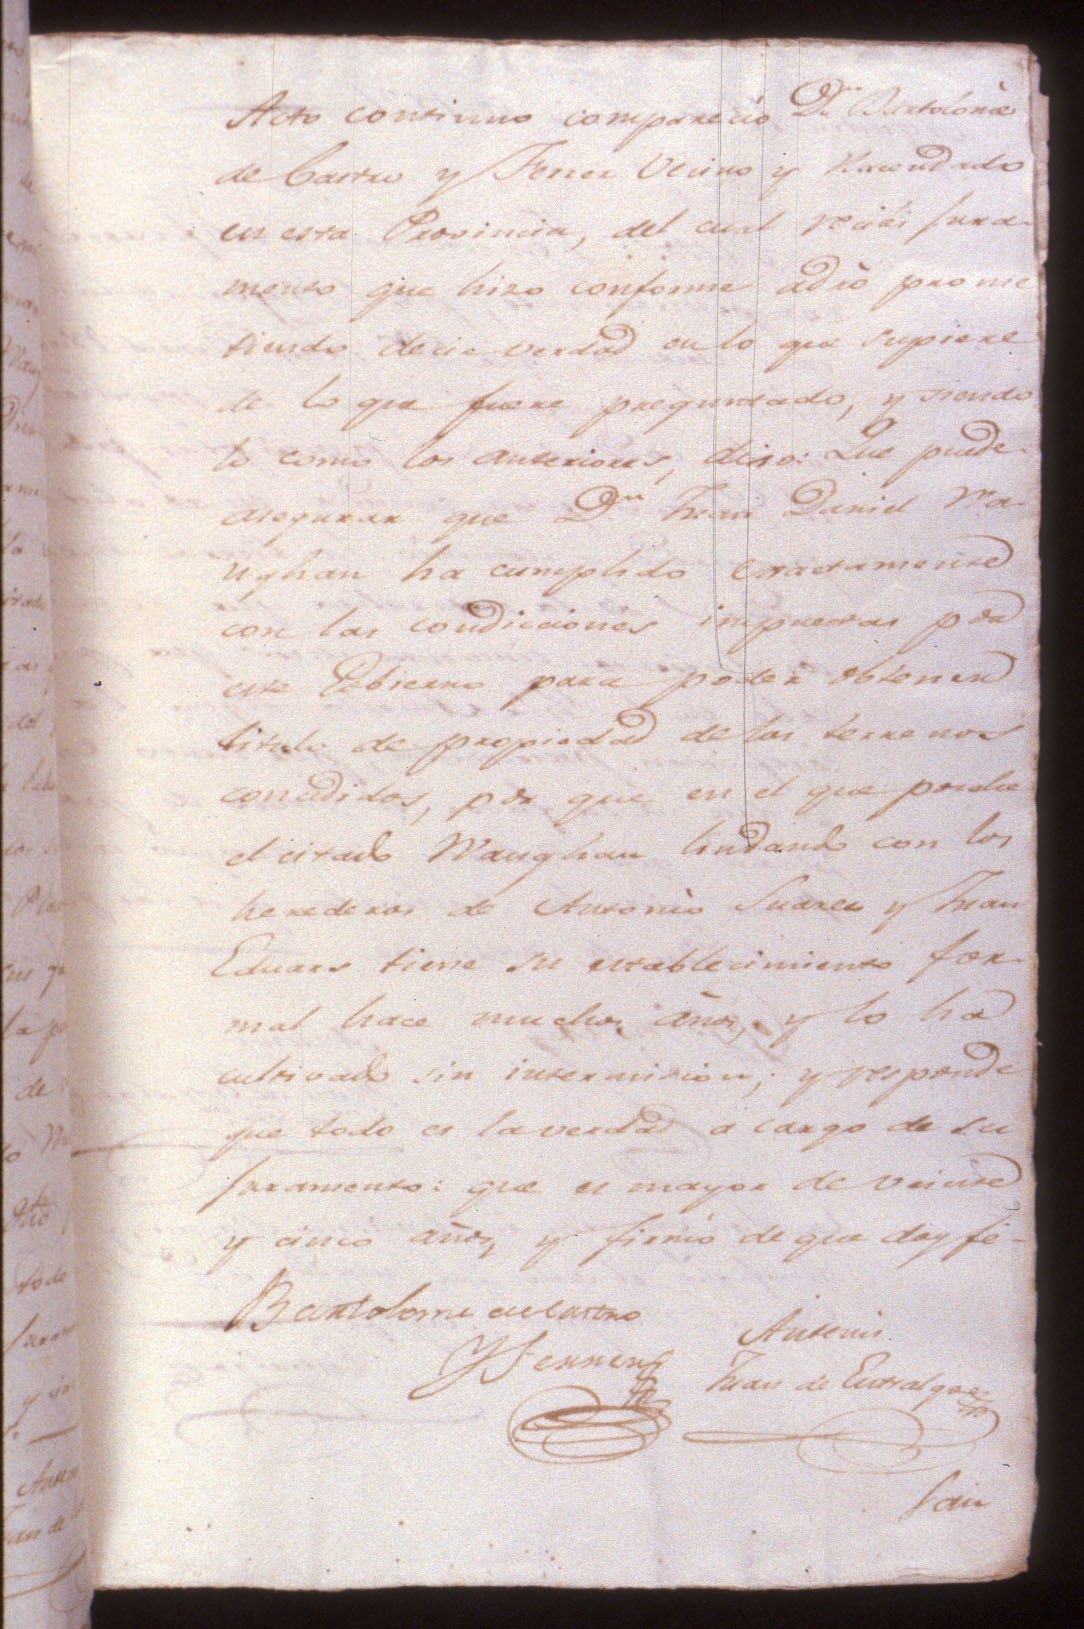 Acto continuo comparecio Dn Bartolomè
de Castro y Ferrer Vecino y Hacendado
en esta Provincia, del cual recivi Jura-
mento que hizo conforme adro prome
tiendo decir verdad en lo que supiere
de lo que fuere preguntado, y siendo
lo como los anteriores, dixo: Que puede
asegurar que Dn Juan Daniel Wa-
ughan ha cumplido exactamente
con las condicciones impuestas por
este Gobierno para poder obtener
titulo de propiedad de los terrenos
concedidos, por que en el que posehe
el citado Waughan lindando con los
herederos de Antonio Suarez y Juan
Eduars tiene su establecimiento for-
mal hace muchos años, y lo ha
cultivado sin intermision; y responde
que todo es la verdad a cargo de su
Juramento: que es mayor de veinte
y cinco años, y firmó de que doy fé-
Bartolome de Castro
Y Ferrer
Antemi
Juan de Entralgo